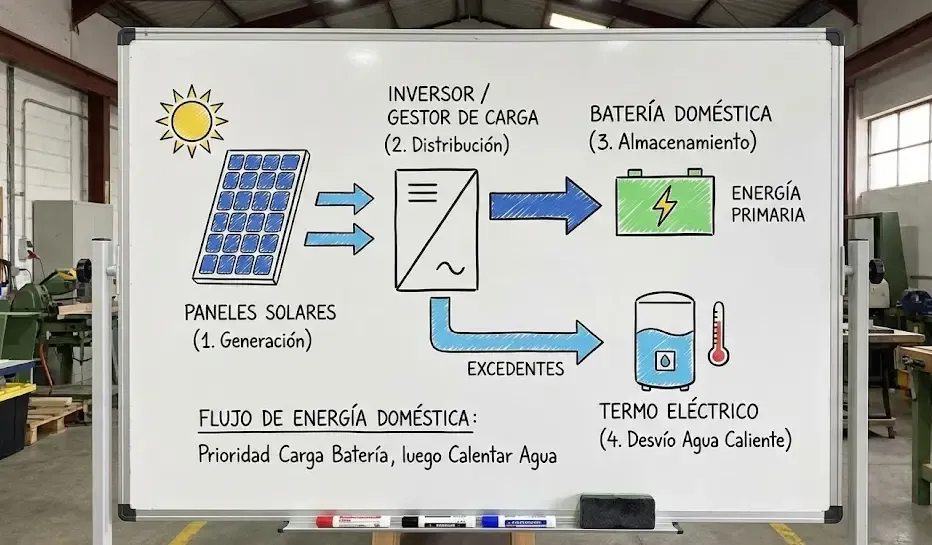 INVERSOR /
GESTOR DE CARGA
(2. Distribución)
BATERÍA DOMÉSTICA
(3. Almacenamiento)
ENERGÍA
PRIMARIA
PANELES SOLARES
(1. Generación)
EXCEDENTES
TERMO ELÉCTRICO
(4. Desvío Agua Caliente)
FLUJO DE ENERGÍA DOMÉSTICA:
Prioridad Carga Batería, luego Calentar Agua